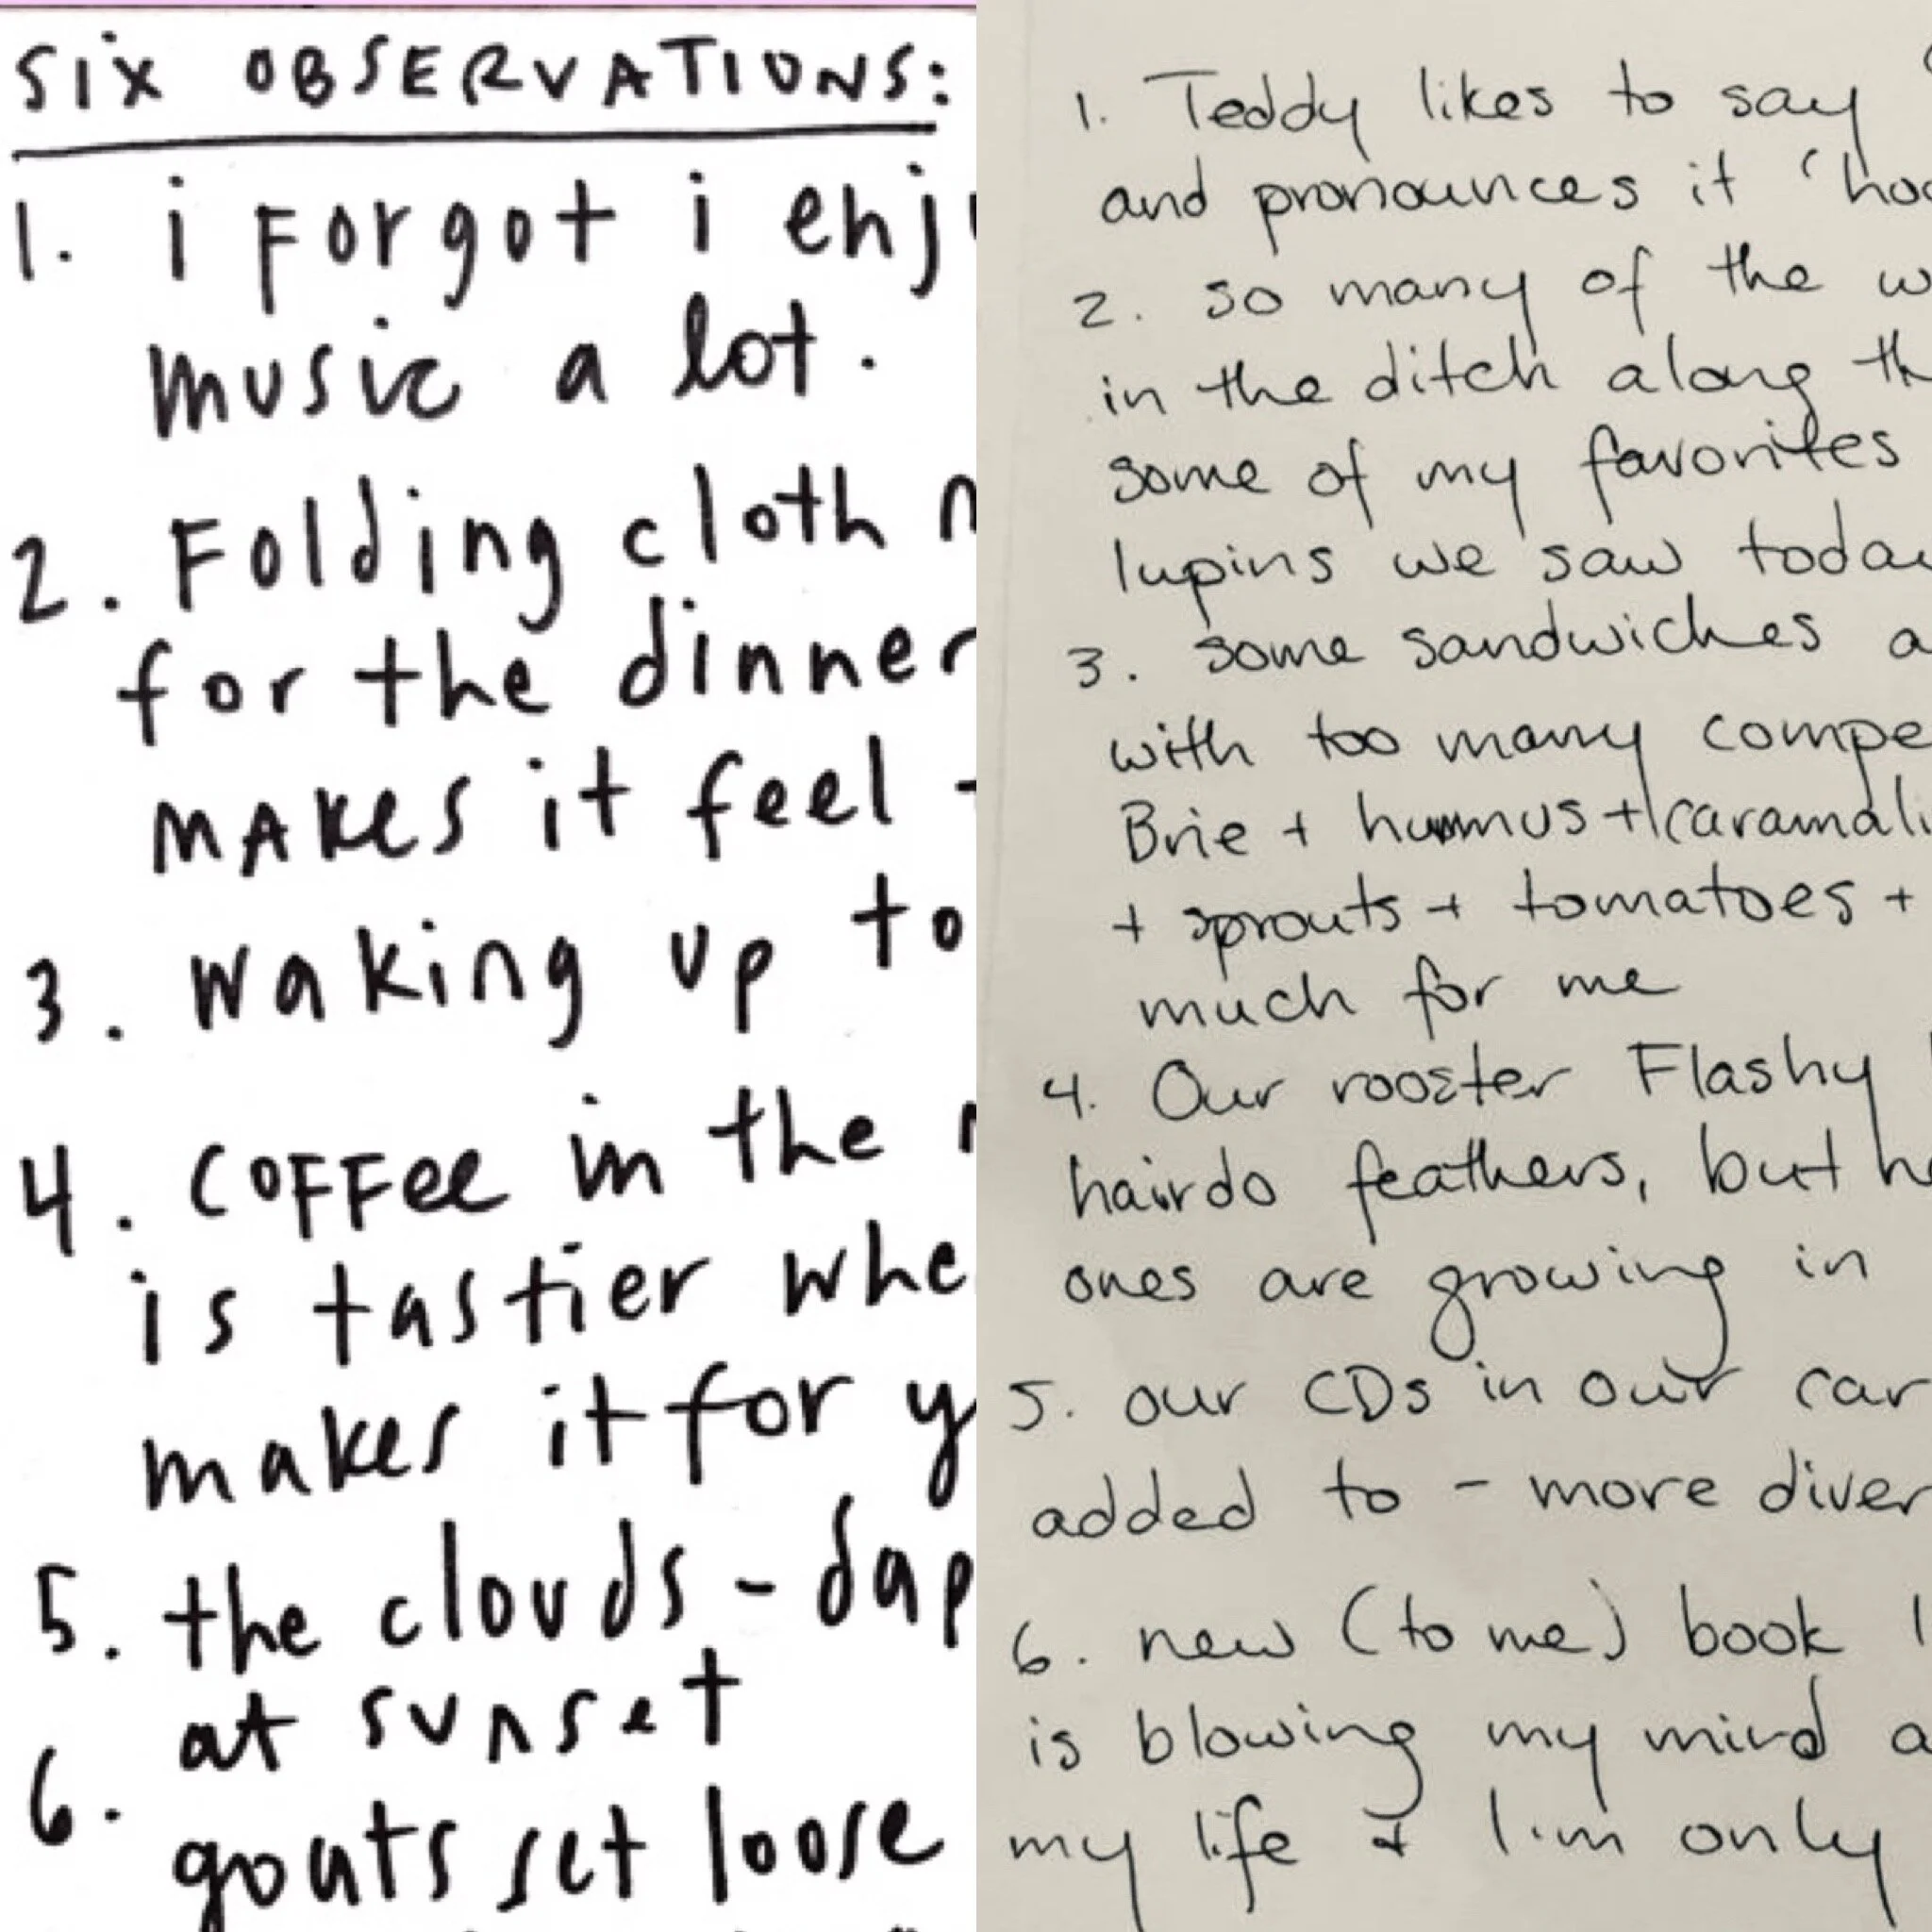 SIX OBSERVATIONS:
1. i Forgot i enj
music a lot.
2. Folding cloth
for the dinner
makes it feel
3. waking up to
4. coffee in the
is tastier whe
makes it for y
5. the clouds - dap
at sunset
6.
goats set loose
1. Teddy likes to say
and pronounces it 'hoo
2. so many of the w
in the ditch along th
some of my favorites
lupins we saw today
3. some sandwiches a
with too many compe
Brie + hummus + caramali
+ sprouts + tomatoes +
much for me
4. Our rooster Flashy
hairdo feathers, but he
ones are growing in
5. our CDs in our car
added to - more diver
6. new (to me) book I
is blowing my mind a
my life & I'm only